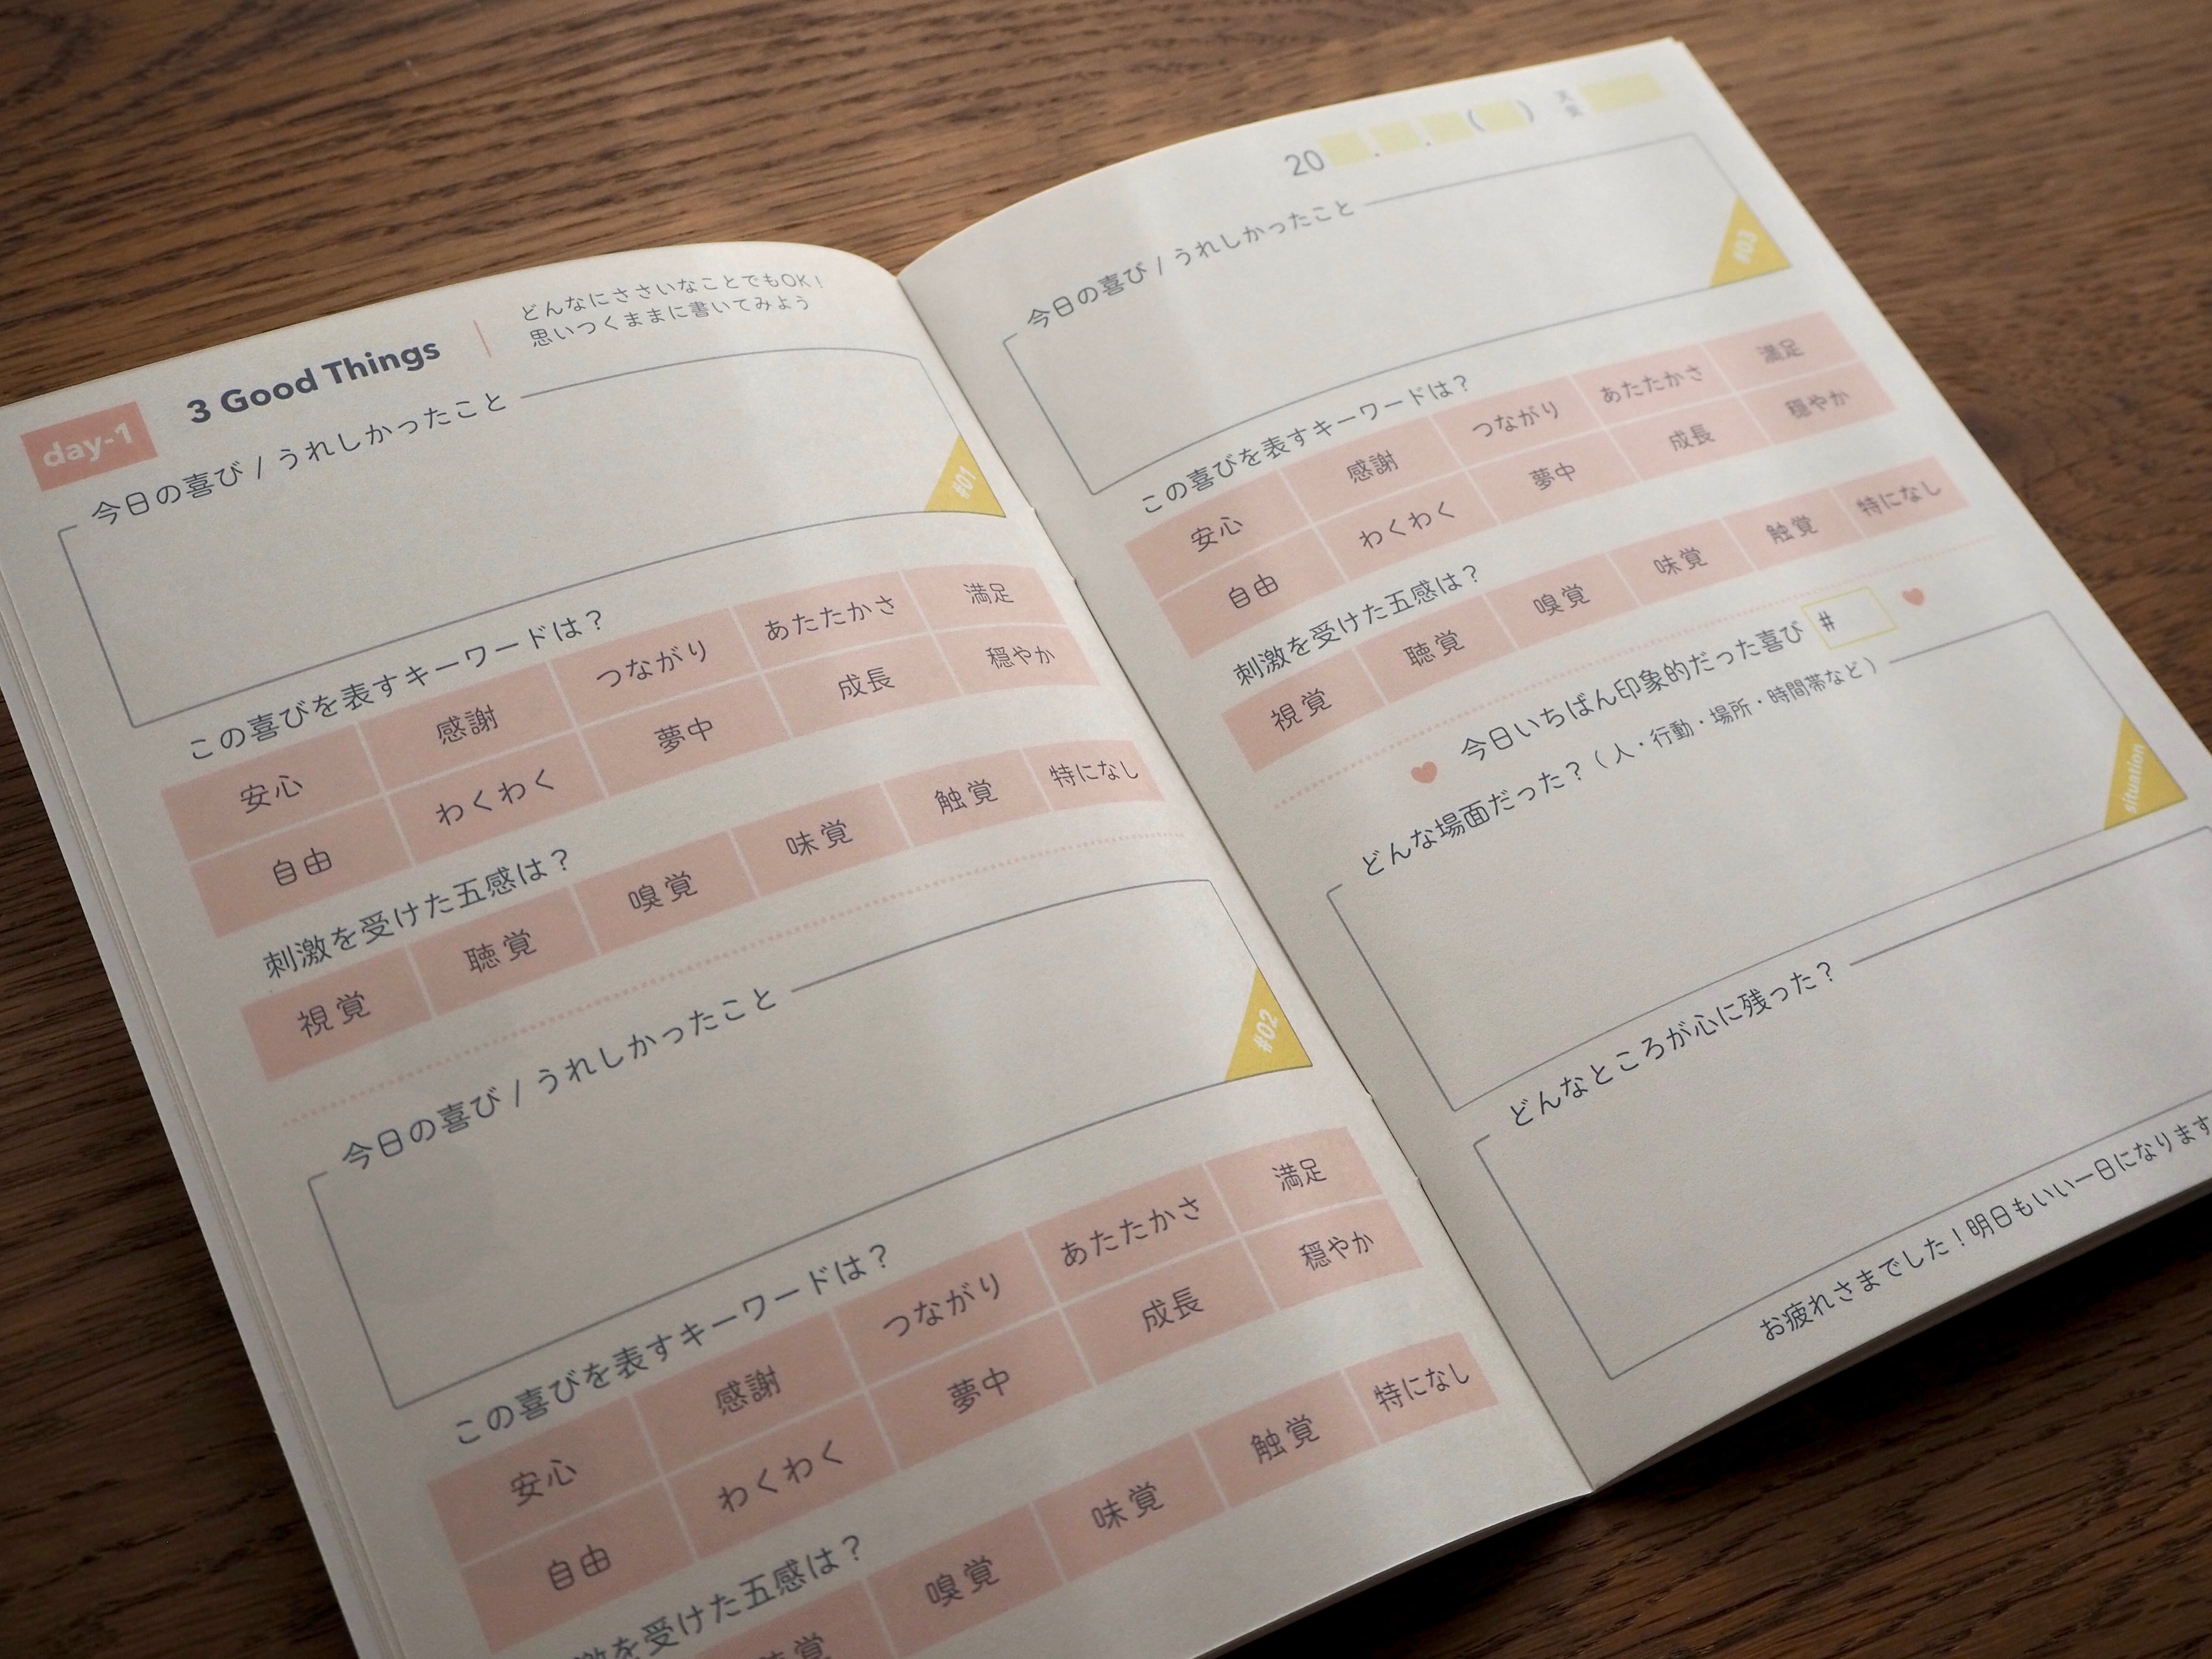 day-1
3 Good Things
どんなにささいなことでもOK!
思いつくままに書いてみよう
今日の喜び / うれしかったこと
#01
この喜びを表すキーワードは?
安心 感謝 つながり あたたかさ 満足
自由 わくわく 夢中 成長 穏やか
刺激を受けた五感は?
視覚 聴覚 嗅覚 味覚 触覚 特になし
今日の喜び / うれしかったこと
#02
この喜びを表すキーワードは?
安心 感謝 つながり あたたかさ 満足
自由 わくわく 夢中 成長 穏やか
激を受けた五感は?
嗅覚 味覚 触覚 特になし
20 . . ( )
今日の喜び / うれしかったこと
#03
この喜びを表すキーワードは?
安心 感謝 つながり あたたかさ 満足
自由 わくわく 夢中 成長 穏やか
刺激を受けた五感は?
視覚 聴覚 嗅覚 味覚 触覚 特になし
今日いちばん印象的だった喜び #
どんな場面だった?(人・行動・場所・時間帯など)
situation
どんなところが心に残った?
お疲れさまでした!明日もいい一日になります